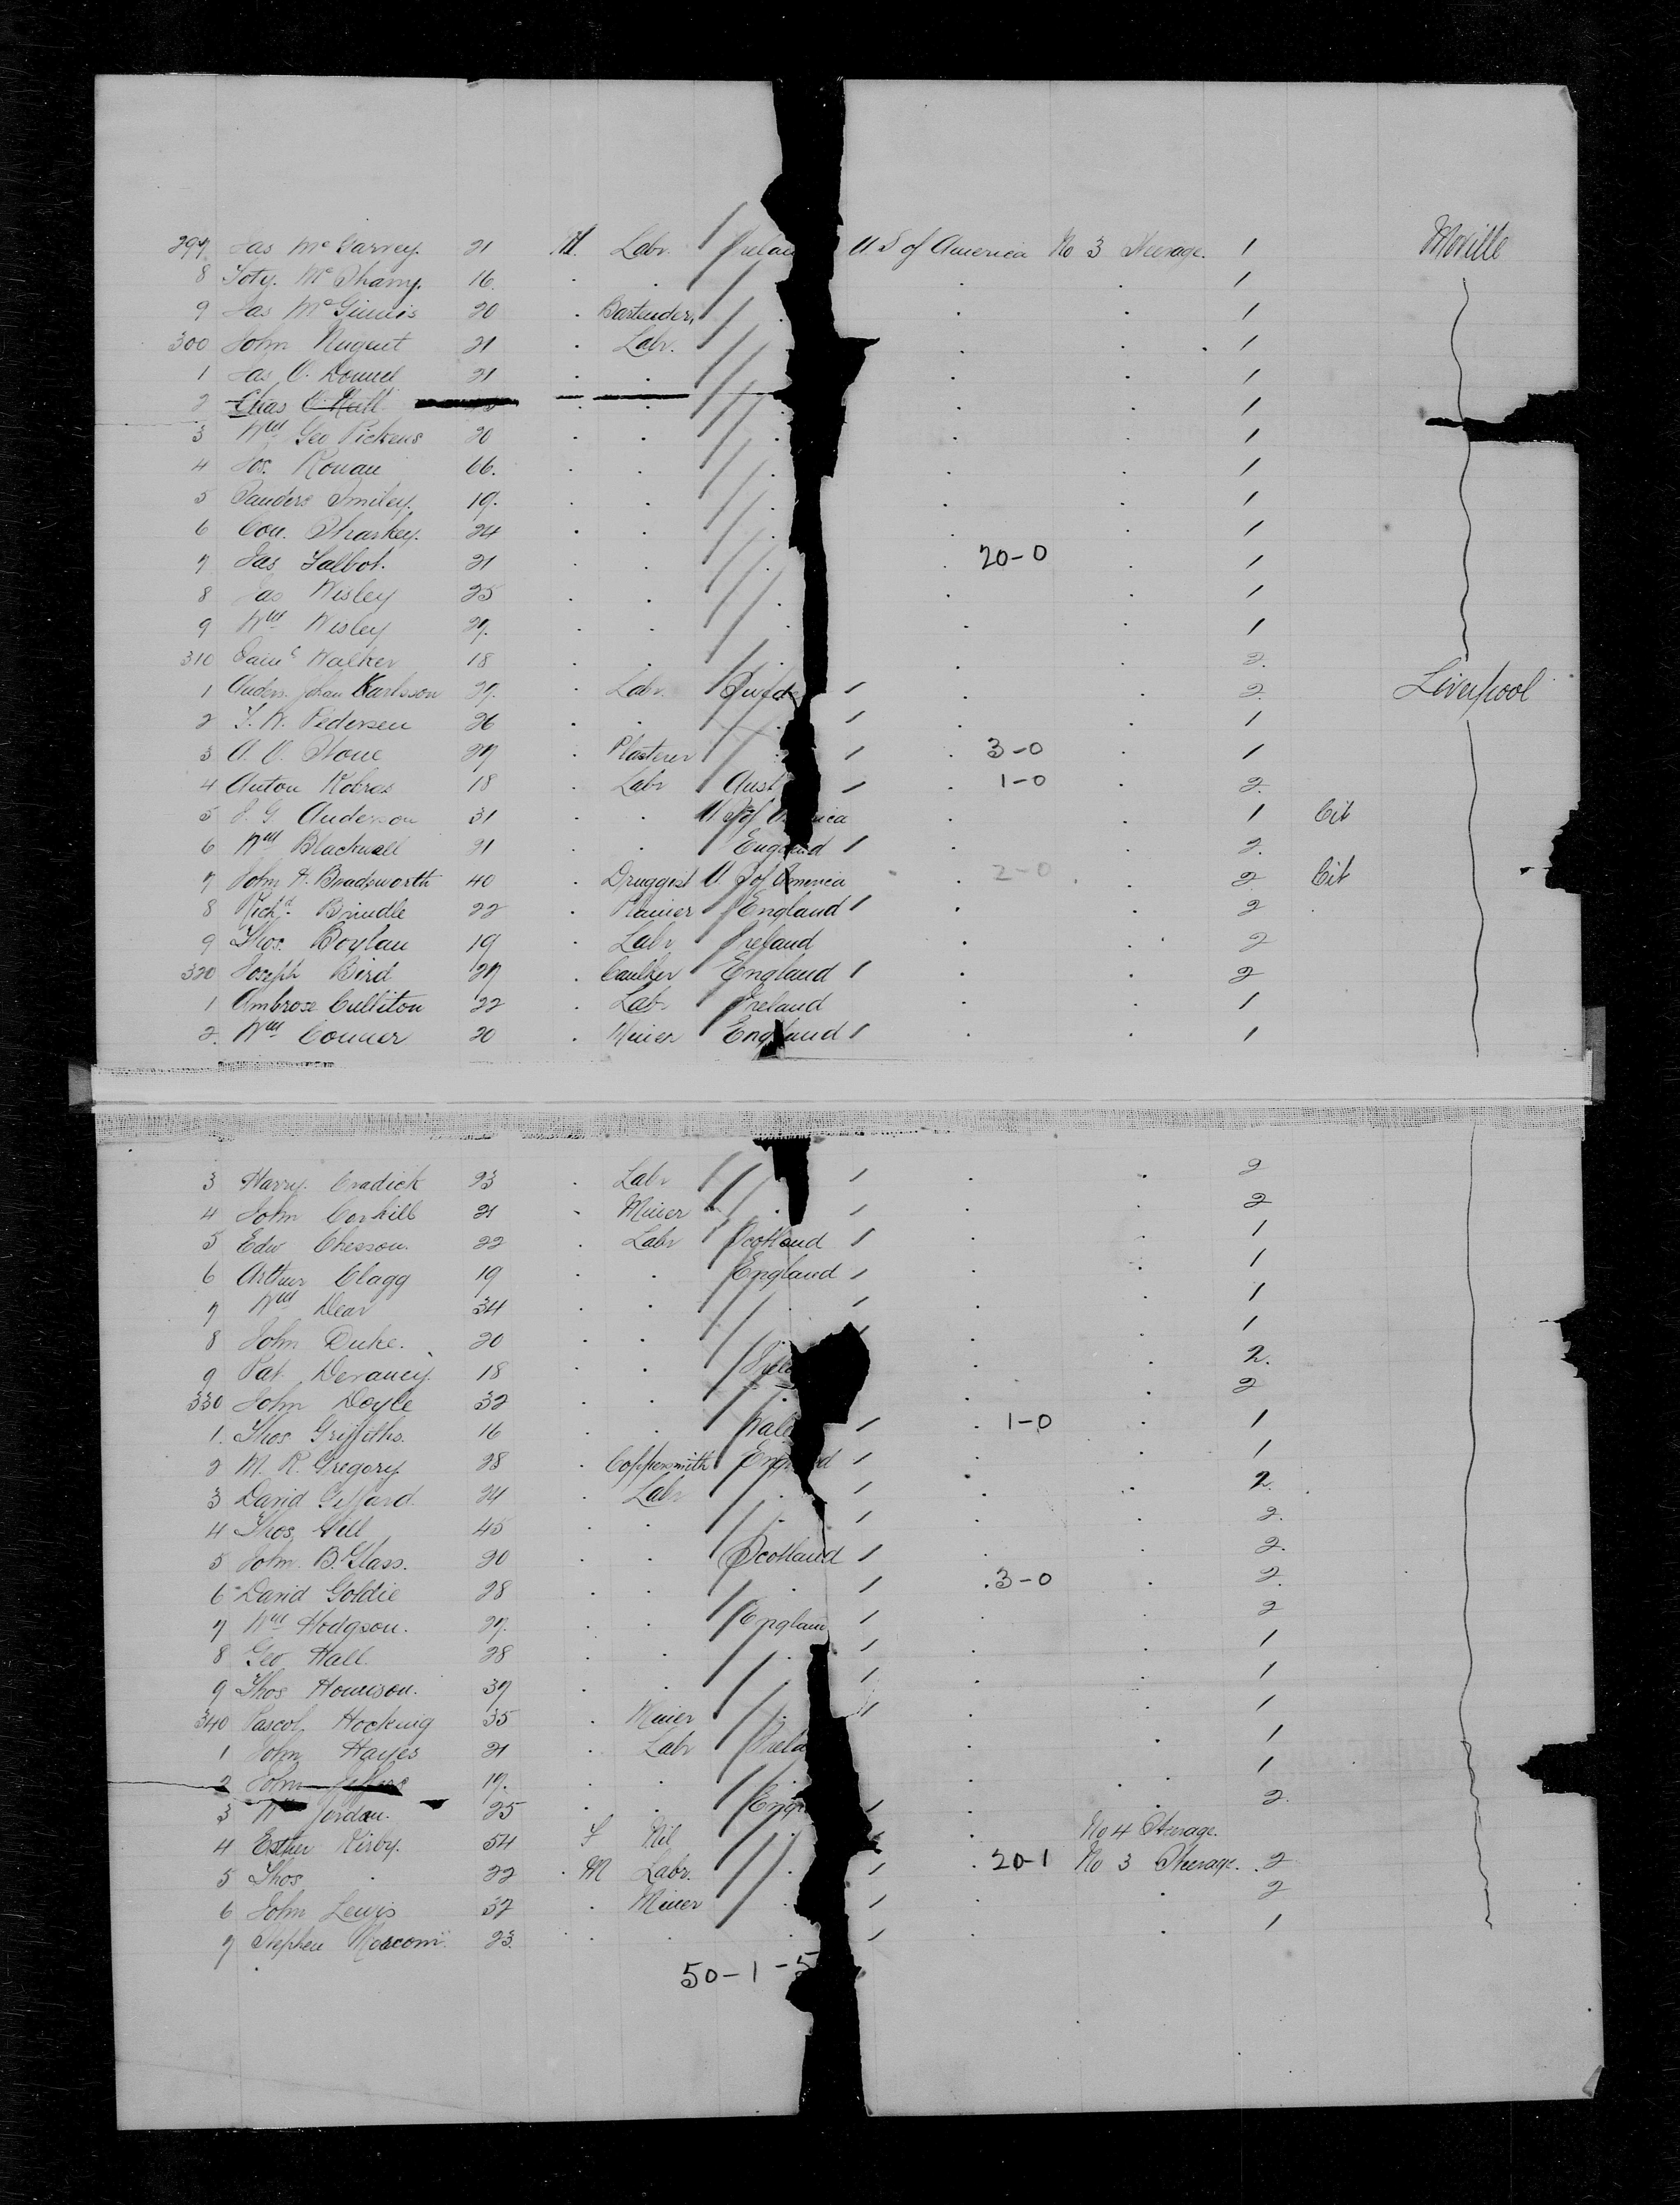 297 Jas McGarvey. 21 M. Labr. Irelan U.S of America No 3 Steerage. 1 Moville
8 Mc 16. 1
9 Jas McGinnis 20 Bartender 1
300 John Nugent 21 Labr. 1
1 Jas O. Donnel 21 1
2 Chas O'Neill 1
3 Wm Geo Pickens 20 1
4 Jos. Ronan 66. 1
5 Sanders Smiley. 19. 1
6 Con. Sharkey. 24 1
7 Jas Talbot. 21 20-0 1
8 Jas Wesley 25 1
9 Wm Wesley 27. 1
310 Walker 18 2.
1 Anders. Johan Karlsson 27. Labr. Swed 2. Liverpool
2 Pedersen 26 1
3 A. O. Stone 27 Plasterer 3-0 1
4 Anton Kobras 18 Labr Aust 1-0 2.
5 J. G Anderson 31 U. S of rica 1 Cit
6 Wm Blackwall 21 England 2.
7 John A. Broadsworth 40 Druggist U. S of America 2-0 2 Cit
8 Richd. Brindle 22 England 2
9 Thos. Boylan 19 Labr Ireland 2
320 Joseph Bird 27 Caulker England 2
1 Ambrose Culliton 22 Labr Ireland 1
2. Wm Conner 20 Miner England 1
3 Harry. Cradick 23 Labr 2
4 John Corkill 21 Miner 2
5 Edw Chesson. 22 Labr Scotland 1
6 Arthur Clagg 19 England 1
7 Wm Dear 34 1
8 John Duke. 20 1
9 Pat. Devaney. 18 Irela 2.
330 John Doyle 32 2
1. Thos Griffiths. 16 Wale 1-0 1
2 M. R. Gregory 28 Coppersmith Eng d 1
3 David Giffard. 24 Labr 2.
4 Thos. Gill 45 2.
5 John. B. Glass. 20 Scotland 2.
6 David Goldie 28 3-0 2.
7 Wm Hodgson. 27. Englan 2
8 Geo Hall. 28 1
9 Thos Howison. 37 1
340 Pascol Hocking 35 Miner 1
1 John Hayes 21 Labr Irela 1
2 John 17. 1
3 Wm Jordan. 25 Eng 2.
4 Esther Kirby. 54 F Nil No 4 Steerage.
5 Thos . 22 M Labr. 20-1 No 3 Steerage. 2
6 John Lewis 32 Miner 2
7 Stephen 23. 1
50-1-5